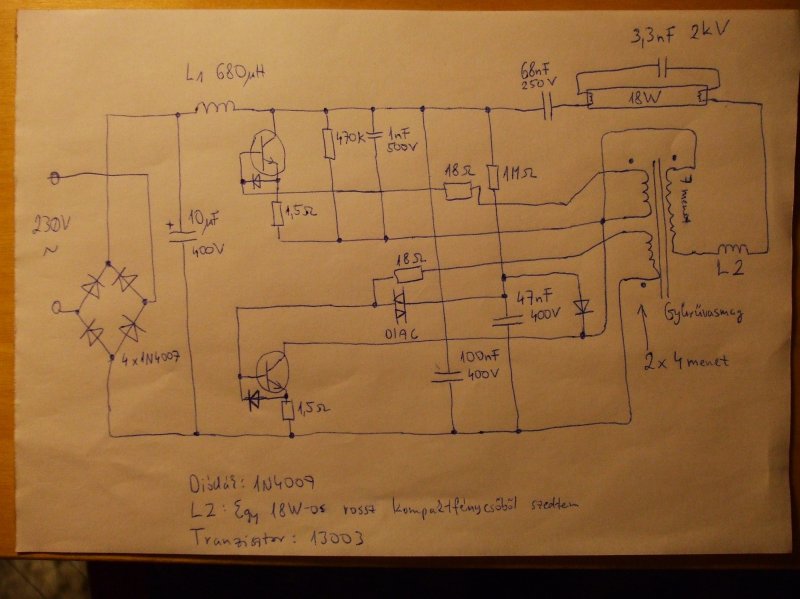 3,3nF 2kV
L1 680µH
68nF
250V
18W
470K
1nF
500V
18Ω
1MΩ
7 menet
230V
~
10µF
400V
+
1,5Ω
18Ω
L2
47nF
400V
DIAC
Gyűrűvasmag
4x1N4007
100nF
400V
2 x 4 menet
1,5Ω
Diódák: 1N4007
L2: Egy 18W-os rossz kompaktfénycsőből szedtem
Tranzisztor: 13003